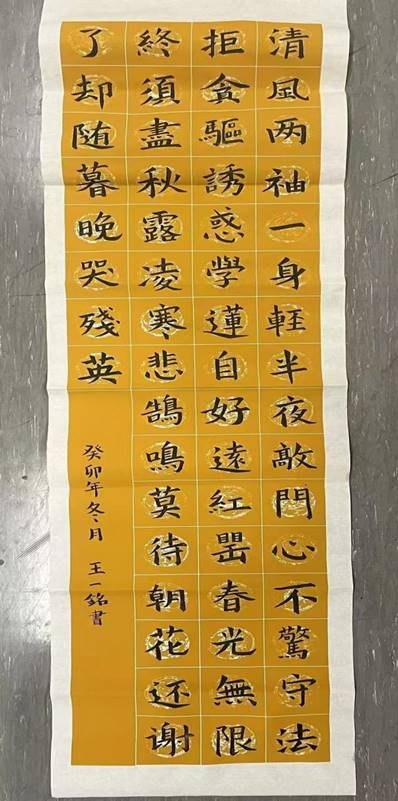 清風两袖一身輕半夜敲門心不驚守法
拒貪驅誘惑學蓮自好遠紅罌春光無限
終須盡秋露凌寒悲鵠鳴莫待朝花还谢
了却随暮晚哭殘英
癸卯年冬月 王一銘書